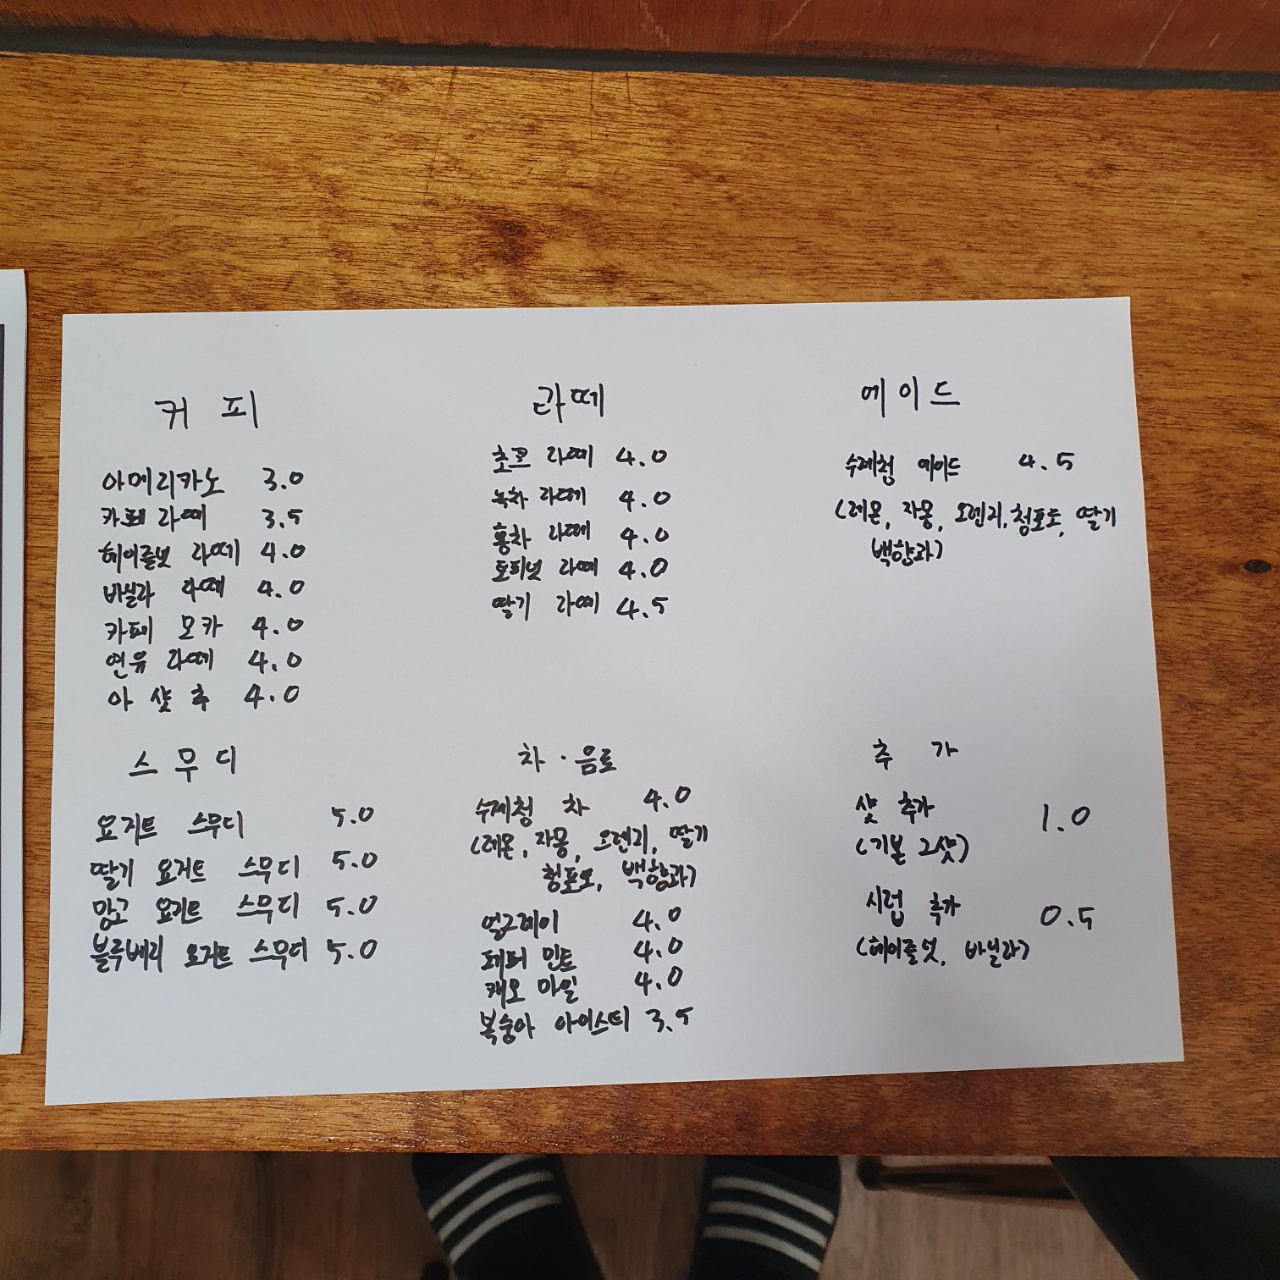 커피
아메리카노 3.0
카페 라떼 3.5
헤이즐넛 라떼 4.0
바닐라 라떼 4.0
카페 모카 4.0
연유 라떼 4.0
아 샷 추 4.0
라떼
초코 라떼 4.0
녹차 라떼 4.0
홍차 라떼 4.0
토피넛 라떼 4.0
딸기 라떼 4.5
에이드
수제청 에이드 4.5
(레몬, 자몽, 오렌지, 청포도, 딸기
백향과)
스무디
요거트 스무디 5.0
딸기 요거트 스무디 5.0
망고 요거트 스무디 5.0
블루베리 요거트 스무디 5.0
차·음료
수제청 차 4.0
(레몬, 자몽, 오렌지, 딸기
청포도, 백향과)
얼그레이 4.0
페퍼 민트 4.0
캐모 마일 4.0
복숭아 아이스티 3.5
추가
샷 추가 1.0
(기본 2샷)
시럽 추가 0.5
(헤이즐넛, 바닐라)